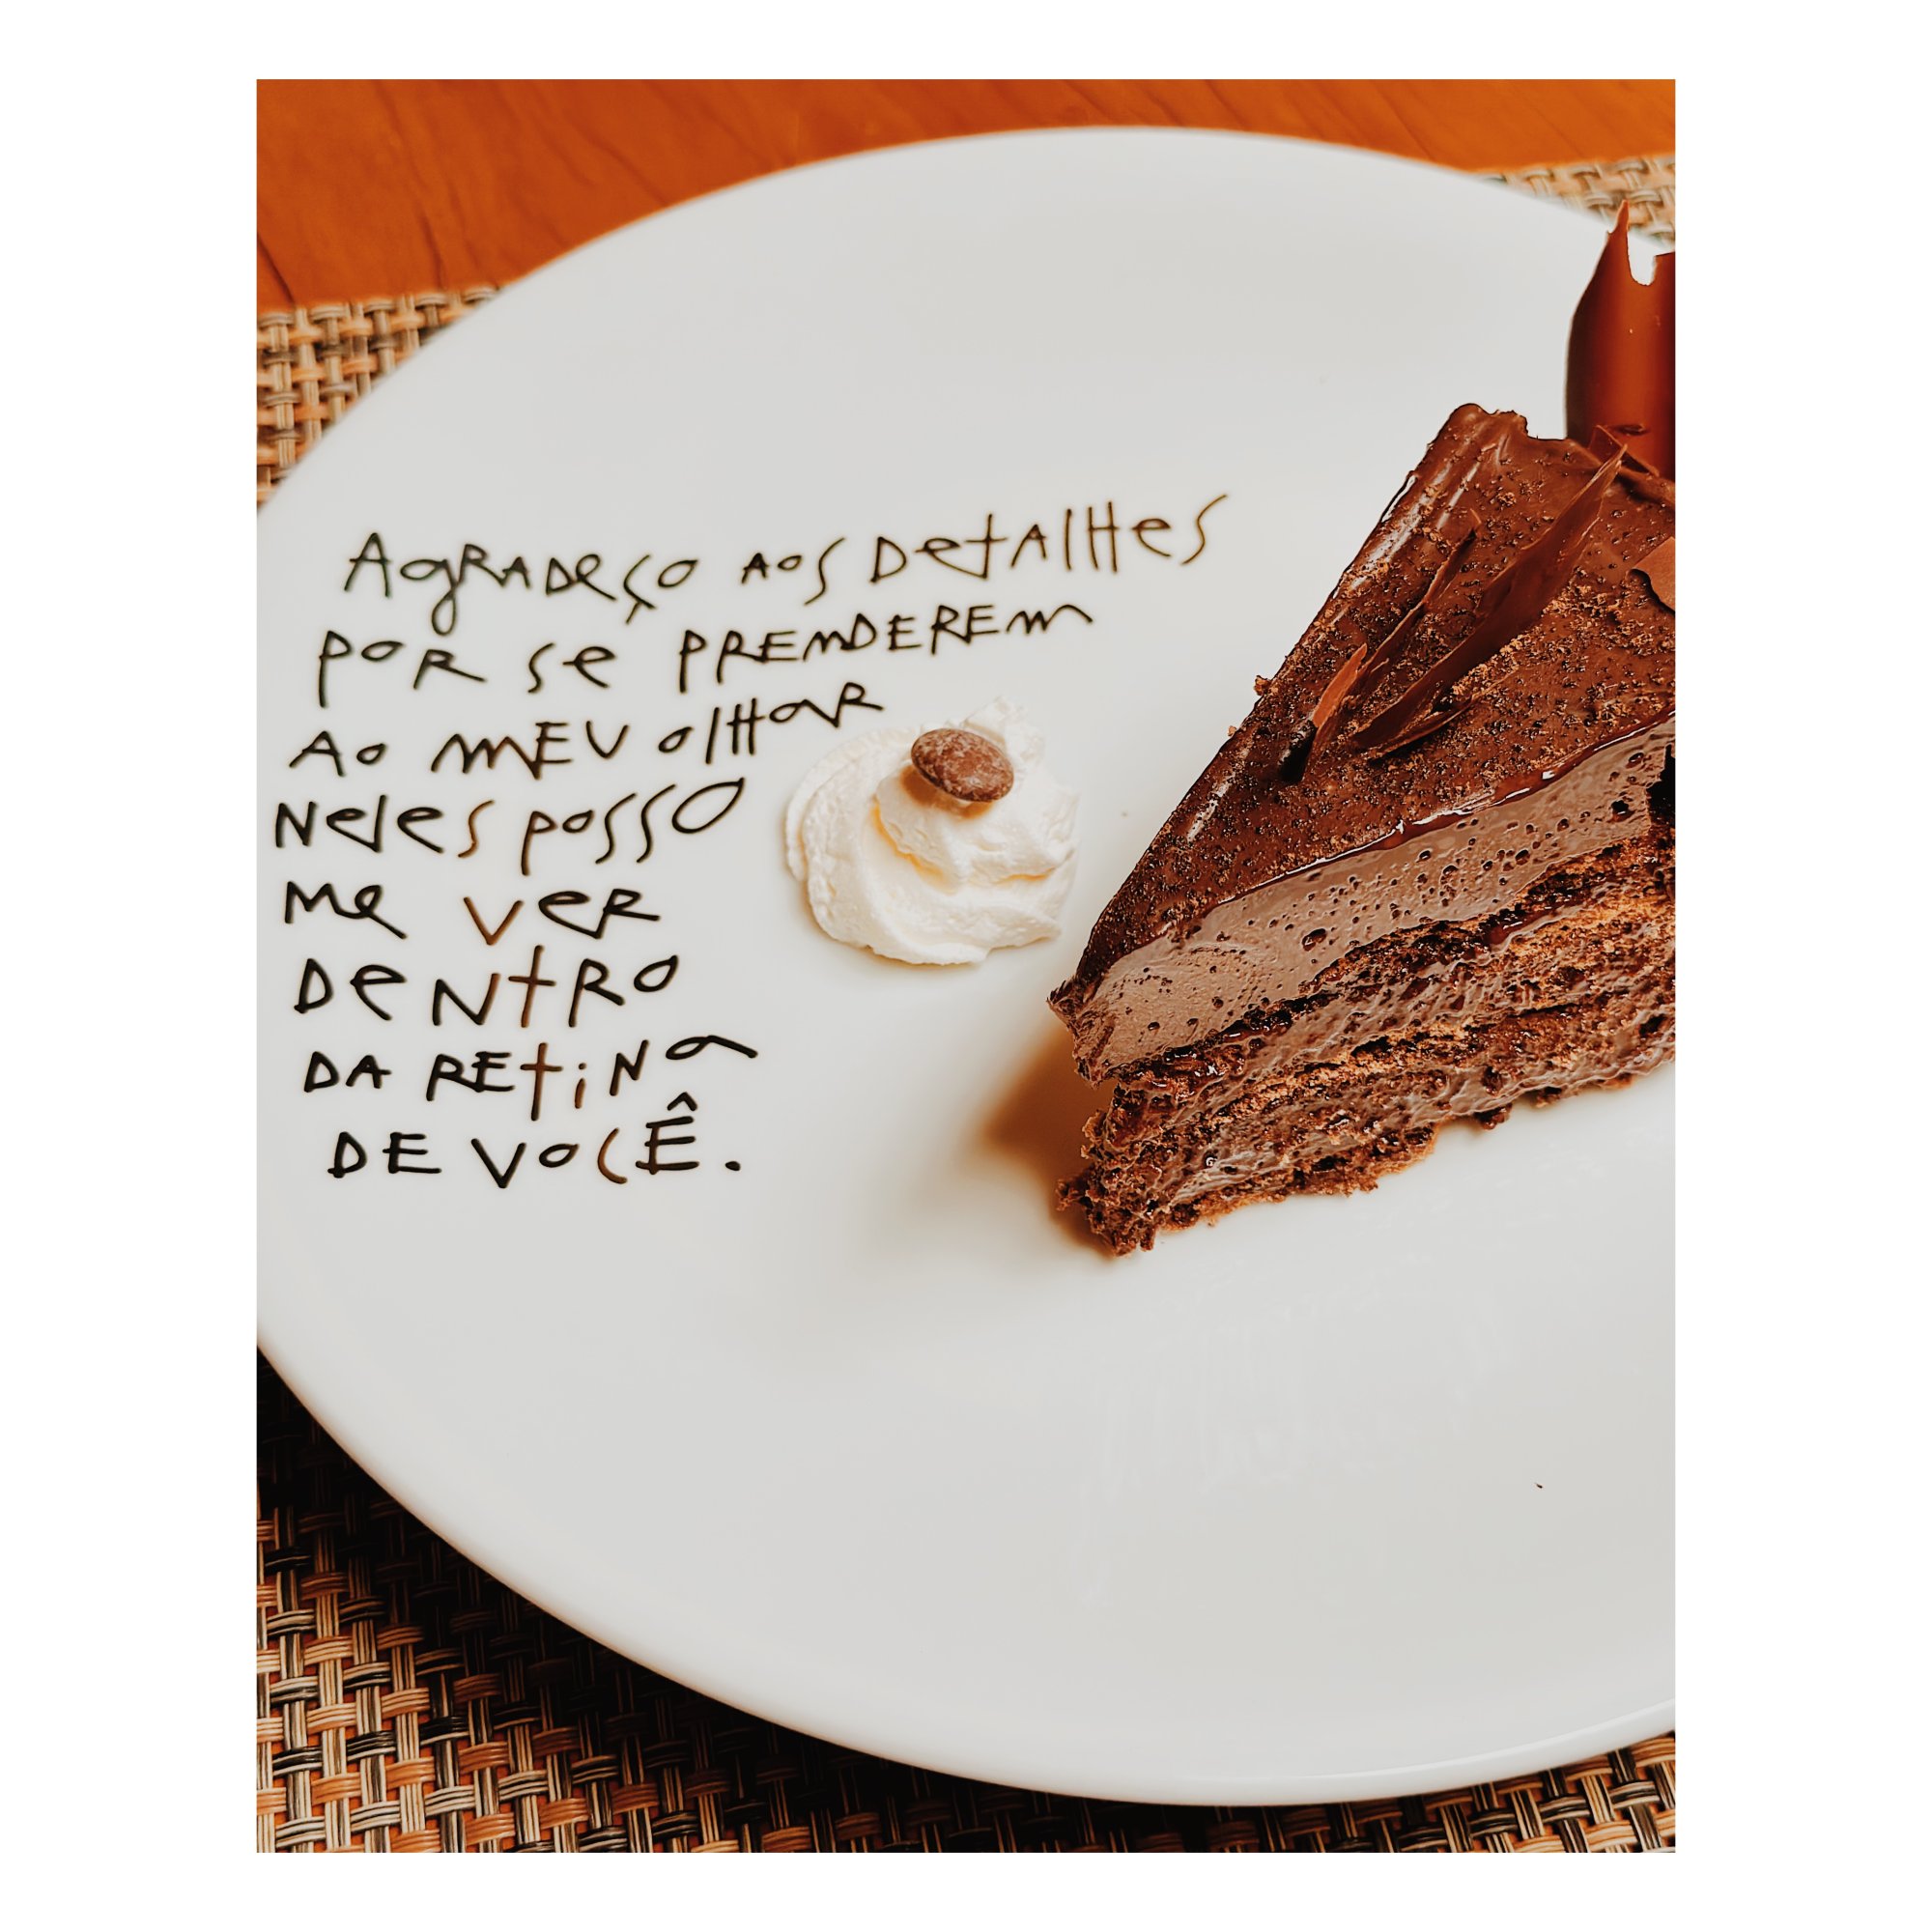 AgRADeço AOS DetAlHes
poR se PREMDEREM
Ao MEU olHaR
Neles posso
Me veR
DeNtRo
DA REtiNa
DE VocÊ.